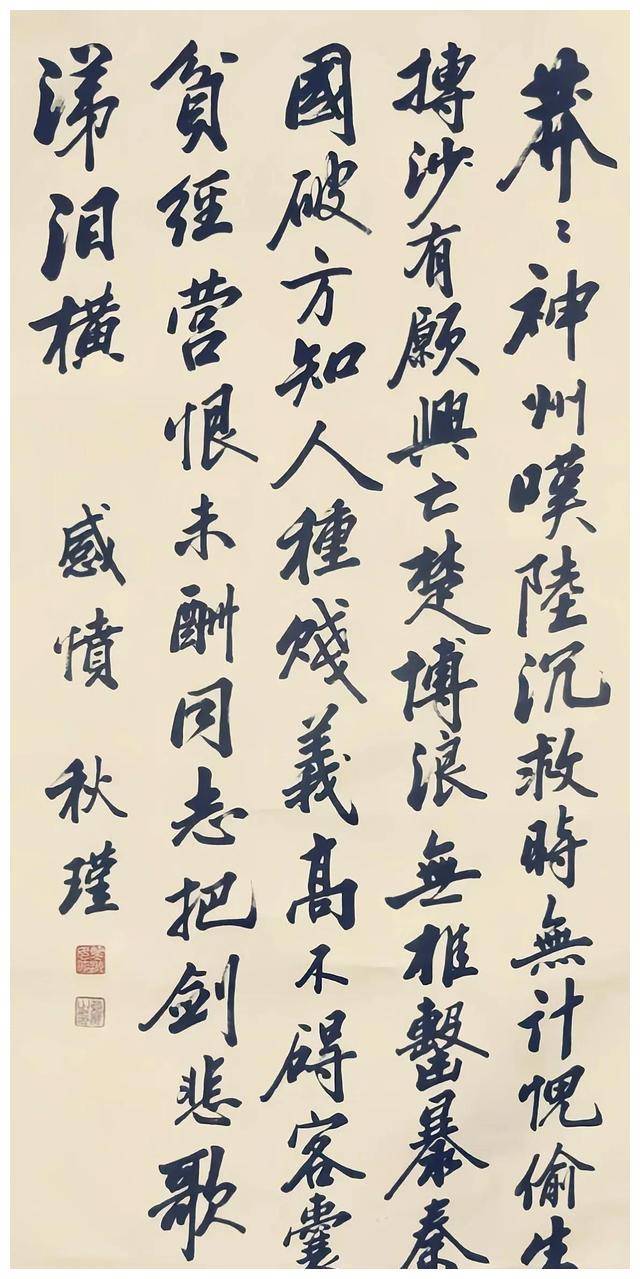 莽々神州嘆陸沉救時無計愧偷生
摶沙有願興亡楚博浪無椎擊暴秦
國破方知人種賤義高不碍客囊
貧經营恨未酬同志把剑悲歌
涕泪橫 感憤 秋瑾